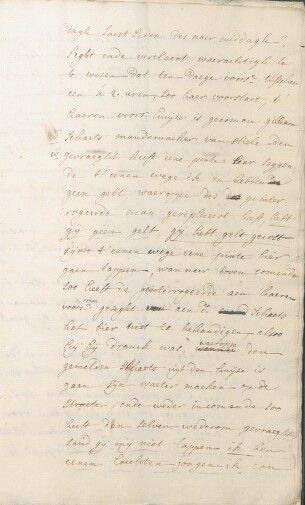 dagh laest leden des naer middaghs
seght ende verclaert waerachtigh te
wesen dat ten daege voors. tusschen
een à 2 uren soo haer voorstaet t'
haeren voors. huijse is gecomen guilliam
schaets mandemaeker van stiele ende
gevraeght heeft eene pinte bier seggen
de t'eenen wege ick en hebbe
geen gelt, waerop de geinter
rogeerde haer gerepliceert heeft hebt
gij geen gelt gij hebt gelt gecost
sijnde t'eenen wege eene pinte bier
gaen tappen, wanneer boven comende
soo heeft de geinterrogeerde aen haeren
voors. man geseght aen den schaets
het bier niet te behandigen alsoo
hij bij dranck was, waer naer den
gemelden schaets uijt den huijse is
gaen sijn waeter maecken op de
straete, ende weder incomende soo
heeft den selven wederom gevraeght
sand gij mij niet tappen ick ben
eenen jongen ick can